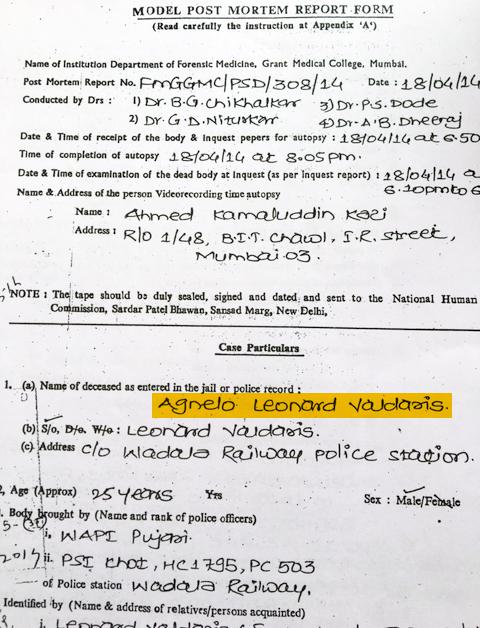 MODEL POST MORTEM REPORT FORM
(Read carefully the instruction at Appendix 'A')
Name of Institution Department of Forensic Medicine, Grant Medical College, Mumbai.
Post Mortem Report No. FMGGMC/PSD/308/14 Date : 18/04/14
Conducted by Drs : 1) Dr. B.G. Chikhalkar 3) Dr. P.S. Dode
2) Dr. G.D. Niturkar 4) Dr. A.B. Dheeraj
Date & Time of receipt of the body & Inquest pepers for autopsy : 18/04/14 at 6.50
Time of completion of autopsy 18/04/14 at 8.05pm.
Date & Time of examination of the dead body at Inquest (as per Inquest report) : 18/04/14 a
6.10pm to 6
Name & Address of the person Videorecording time autopsy
Name : Ahmed Kamaluddin Kazi
Address : R/O 1/48, B.I.T. Chawl, I.R. Street,
Mumbai-03.
NOTE : The tape should be duly sealed, signed and dated and sent to the National Human
Commission, Sardar Patel Bhawan, Sansad Marg, New Delhi,
Case Particulars
1. (a) Name of deceased as entered in the jail or police record :
Agnelo Leonard Valdaris.
(b) S/o, D/o. W/o : Leonard Valdaris.
(c) Address C/o Wadala Railway Police Station.
2, Age (Approx) 25 years Yrs Sex : Male/Female
. Body brought by (Name and rank of police officers)
i. WAPI Pujari.
2014 ii. PSI Khot, HC 1795, PC 503
of Police station Wadala Railway.
Identified by (Name & address of relatives/persons acquainted)
i. Leonard Valdaris